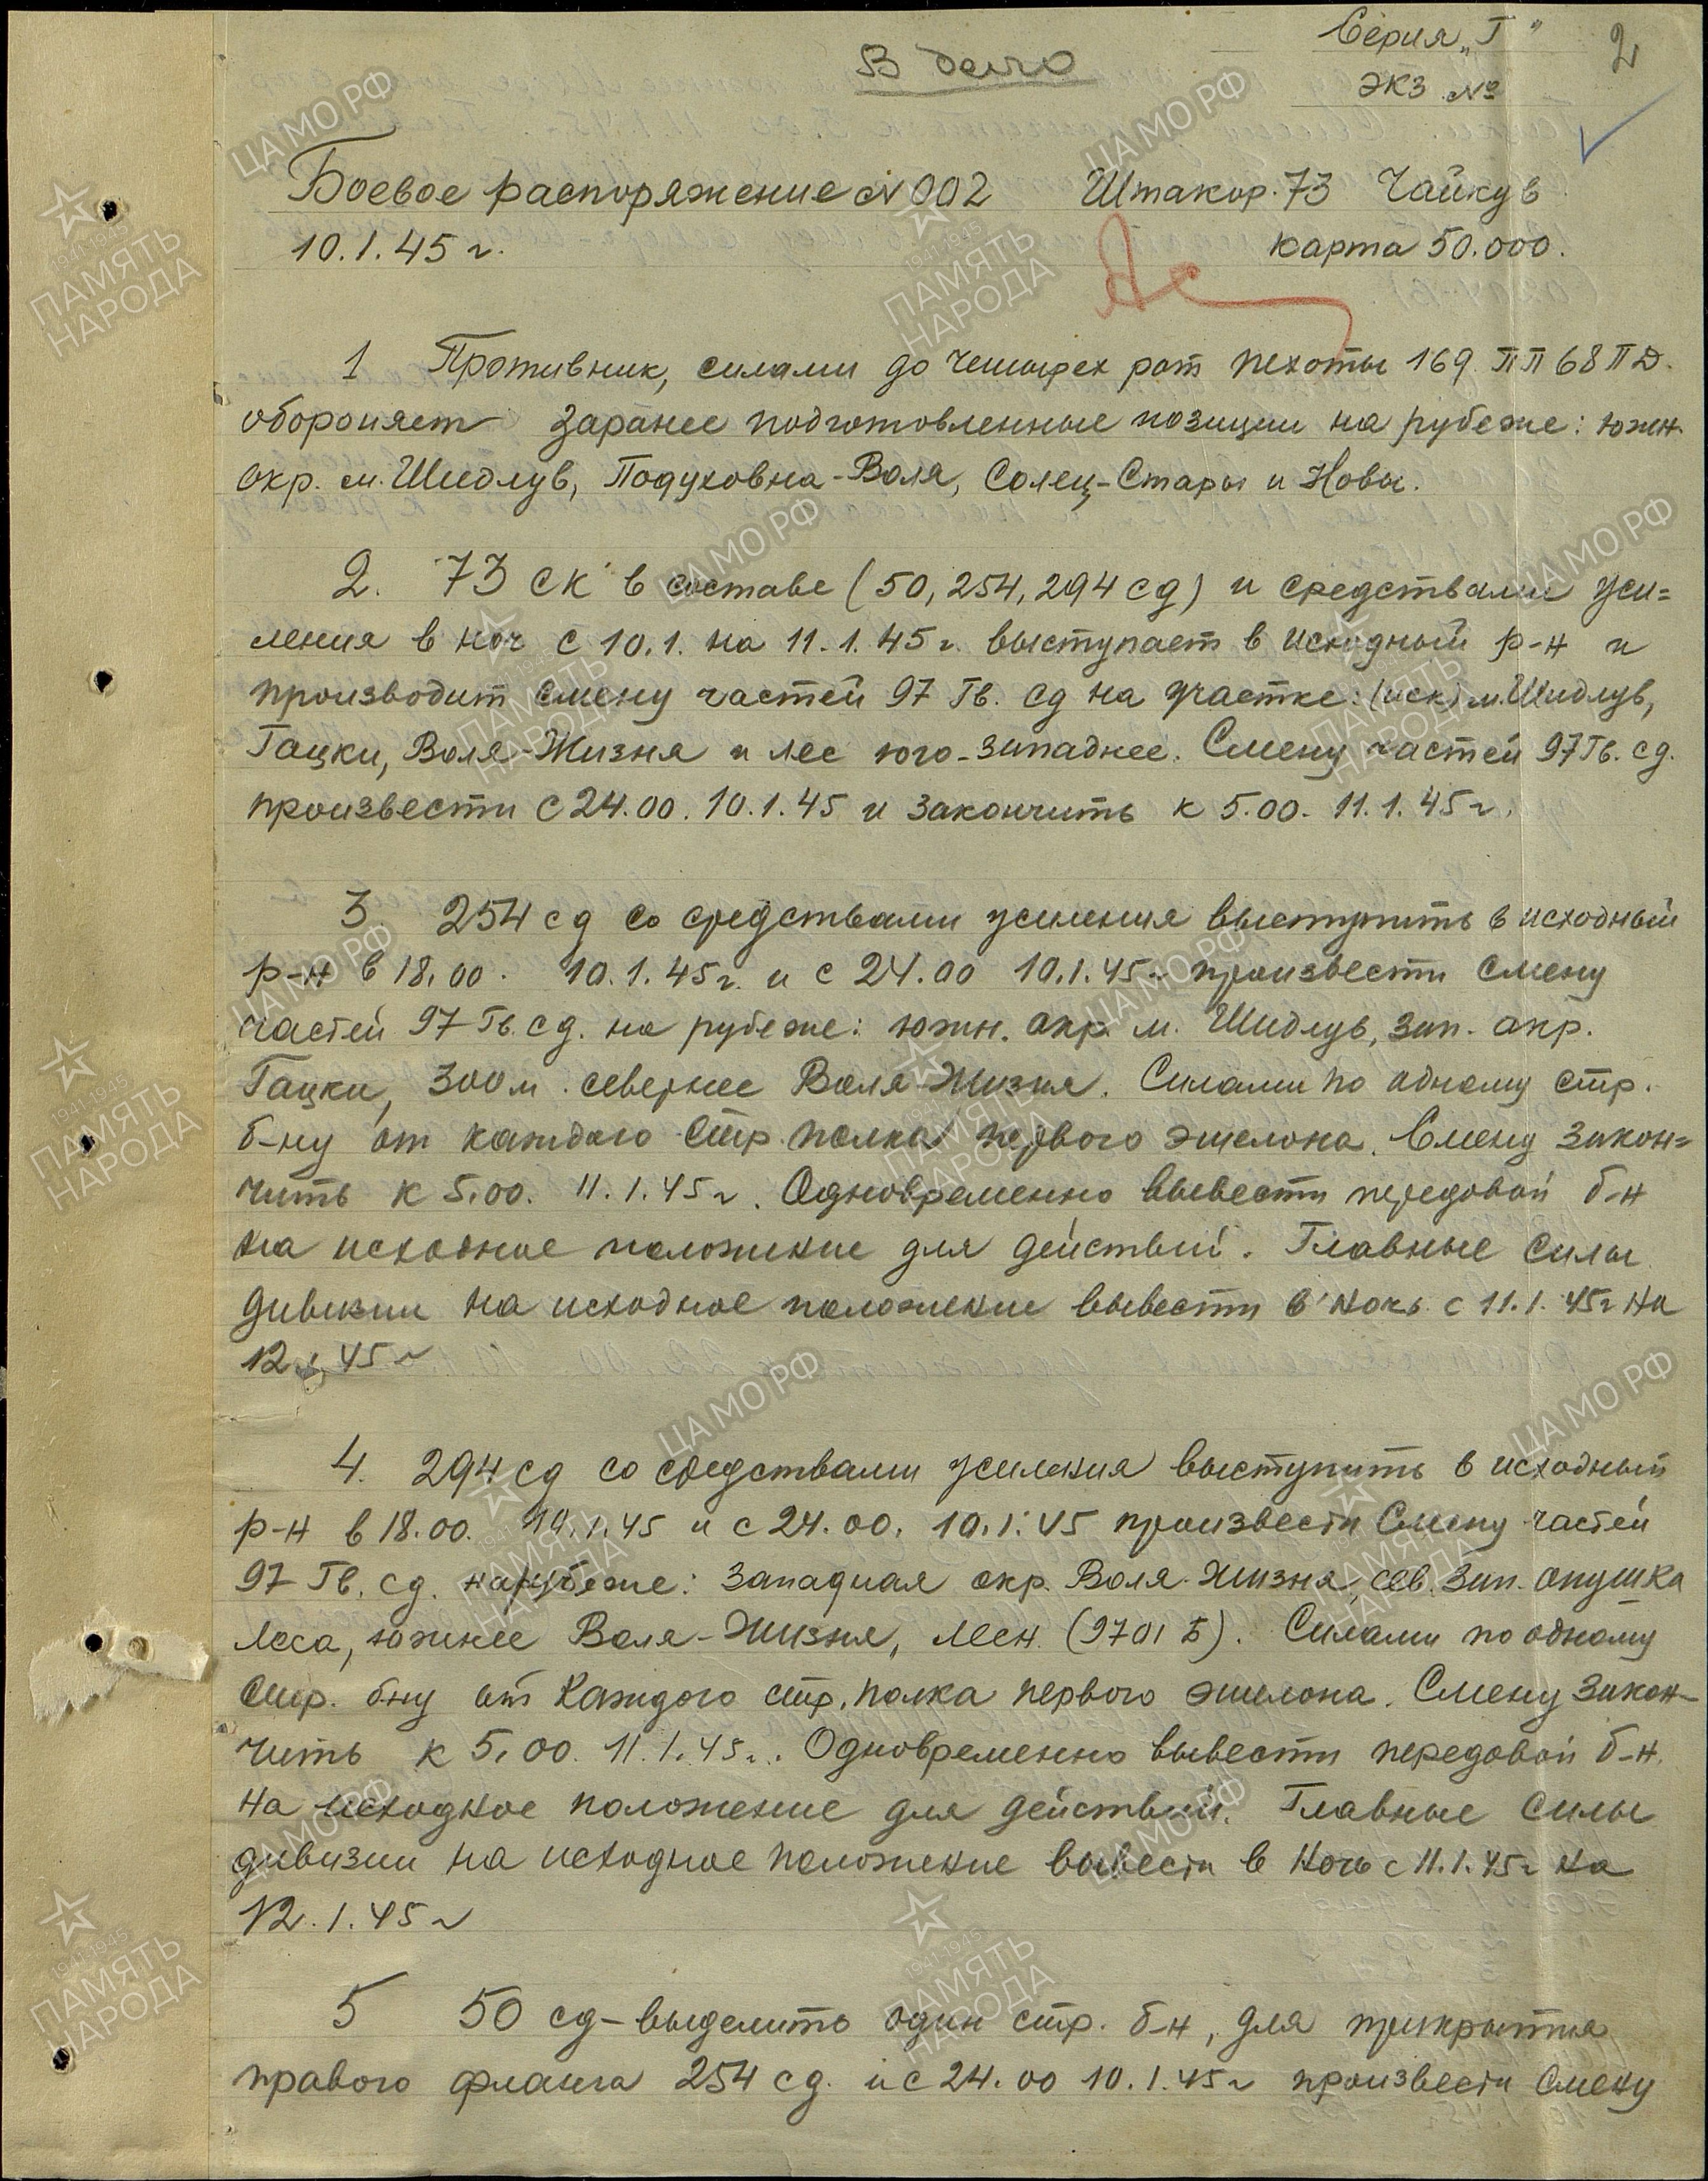 Серия „Г"
2
В дело
экз №
Боевое распоряжение №002 Штакор.73 Чайкув
10.1.45 г. карта 50.000.
1 Противник, силами до четырех рот пехоты 169 ПП 68 ПД.
обороняет заранее подготовленные позиции на рубеже: южн.
окр. м. Шидлув, Подуховна-Воля, Солец-Стары и Новы.
2. 73 СК в составе (50, 254, 294 сд) и средствами уси=
ления в ноч с 10.1. на 11.1.45 г. выступает в исходный р-н и
производит смену частей 97 Гв. сд на участке: (иск) м. Шидлув,
Гацки, Воля-Жизня и лес юго-западнее. Смену частей 97 Гв. сд.
произвести с 24.00. 10.1.45 и закончить к 5.00. 11.1.45 г.
3. 254 сд со средствами усиления выступить в исходный
р-н в 18.00. 10.1.45 г. и с 24.00 10.1.45 г произвести смену
частей 97 Гв. сд. на рубеже: южн. окр. м. Шидлув, зап. окр.
Гацки, 300 м. севернее Воля-Жизня. Силами по одному стр.
б-ну от каждого стр. полка первого эшелона. Смену закон=
чить к 5.00. 11.1.45 г. Одновременно вывести передовой б-н
на исходное положение для действий. Главные силы
дивизии на исходное положение вывести в ночь с 11.1.45 г на
12.1.45 г
4. 294 сд со средствами усиления выступить в исходный
р-н в 18.00. 10.1.45 и с 24.00. 10.1.45 произвести смену частей
97 Гв. сд. на рубеже: западная окр. Воля-Жизня, сев. зап. опушка
леса, южнее Воля-Жизня, лесн. (9701 Б). Силами по одному
стр. б-ну от каждого стр. полка первого эшелона. Смену закон-
чить к 5.00. 11.1.45 г. Одновременно вывести передовой б-н.
на исходное положение для действий. Главные силы
дивизии на исходное положение вывести в ночь с 11.1.45 г на
12.1.45 г
5 50 сд - выделить один стр. б-н, для прикрытия
правого фланга 254 сд. и с 24.00 10.1.45 г произвести смену